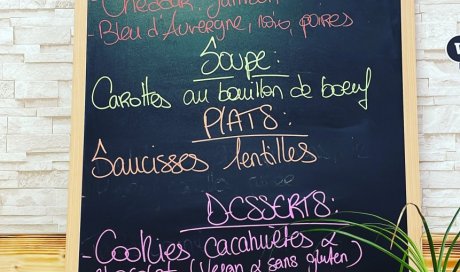 - Cheddar, jambon
- Bleu d'Auvergne, noix, poires
Soupe:
Carottes au bouillon de boeuf
PLATS:
Saucisses lentilles
DESSERTS:
- Cookies cacahuètes &
chocolat (vegan & sans gluten)